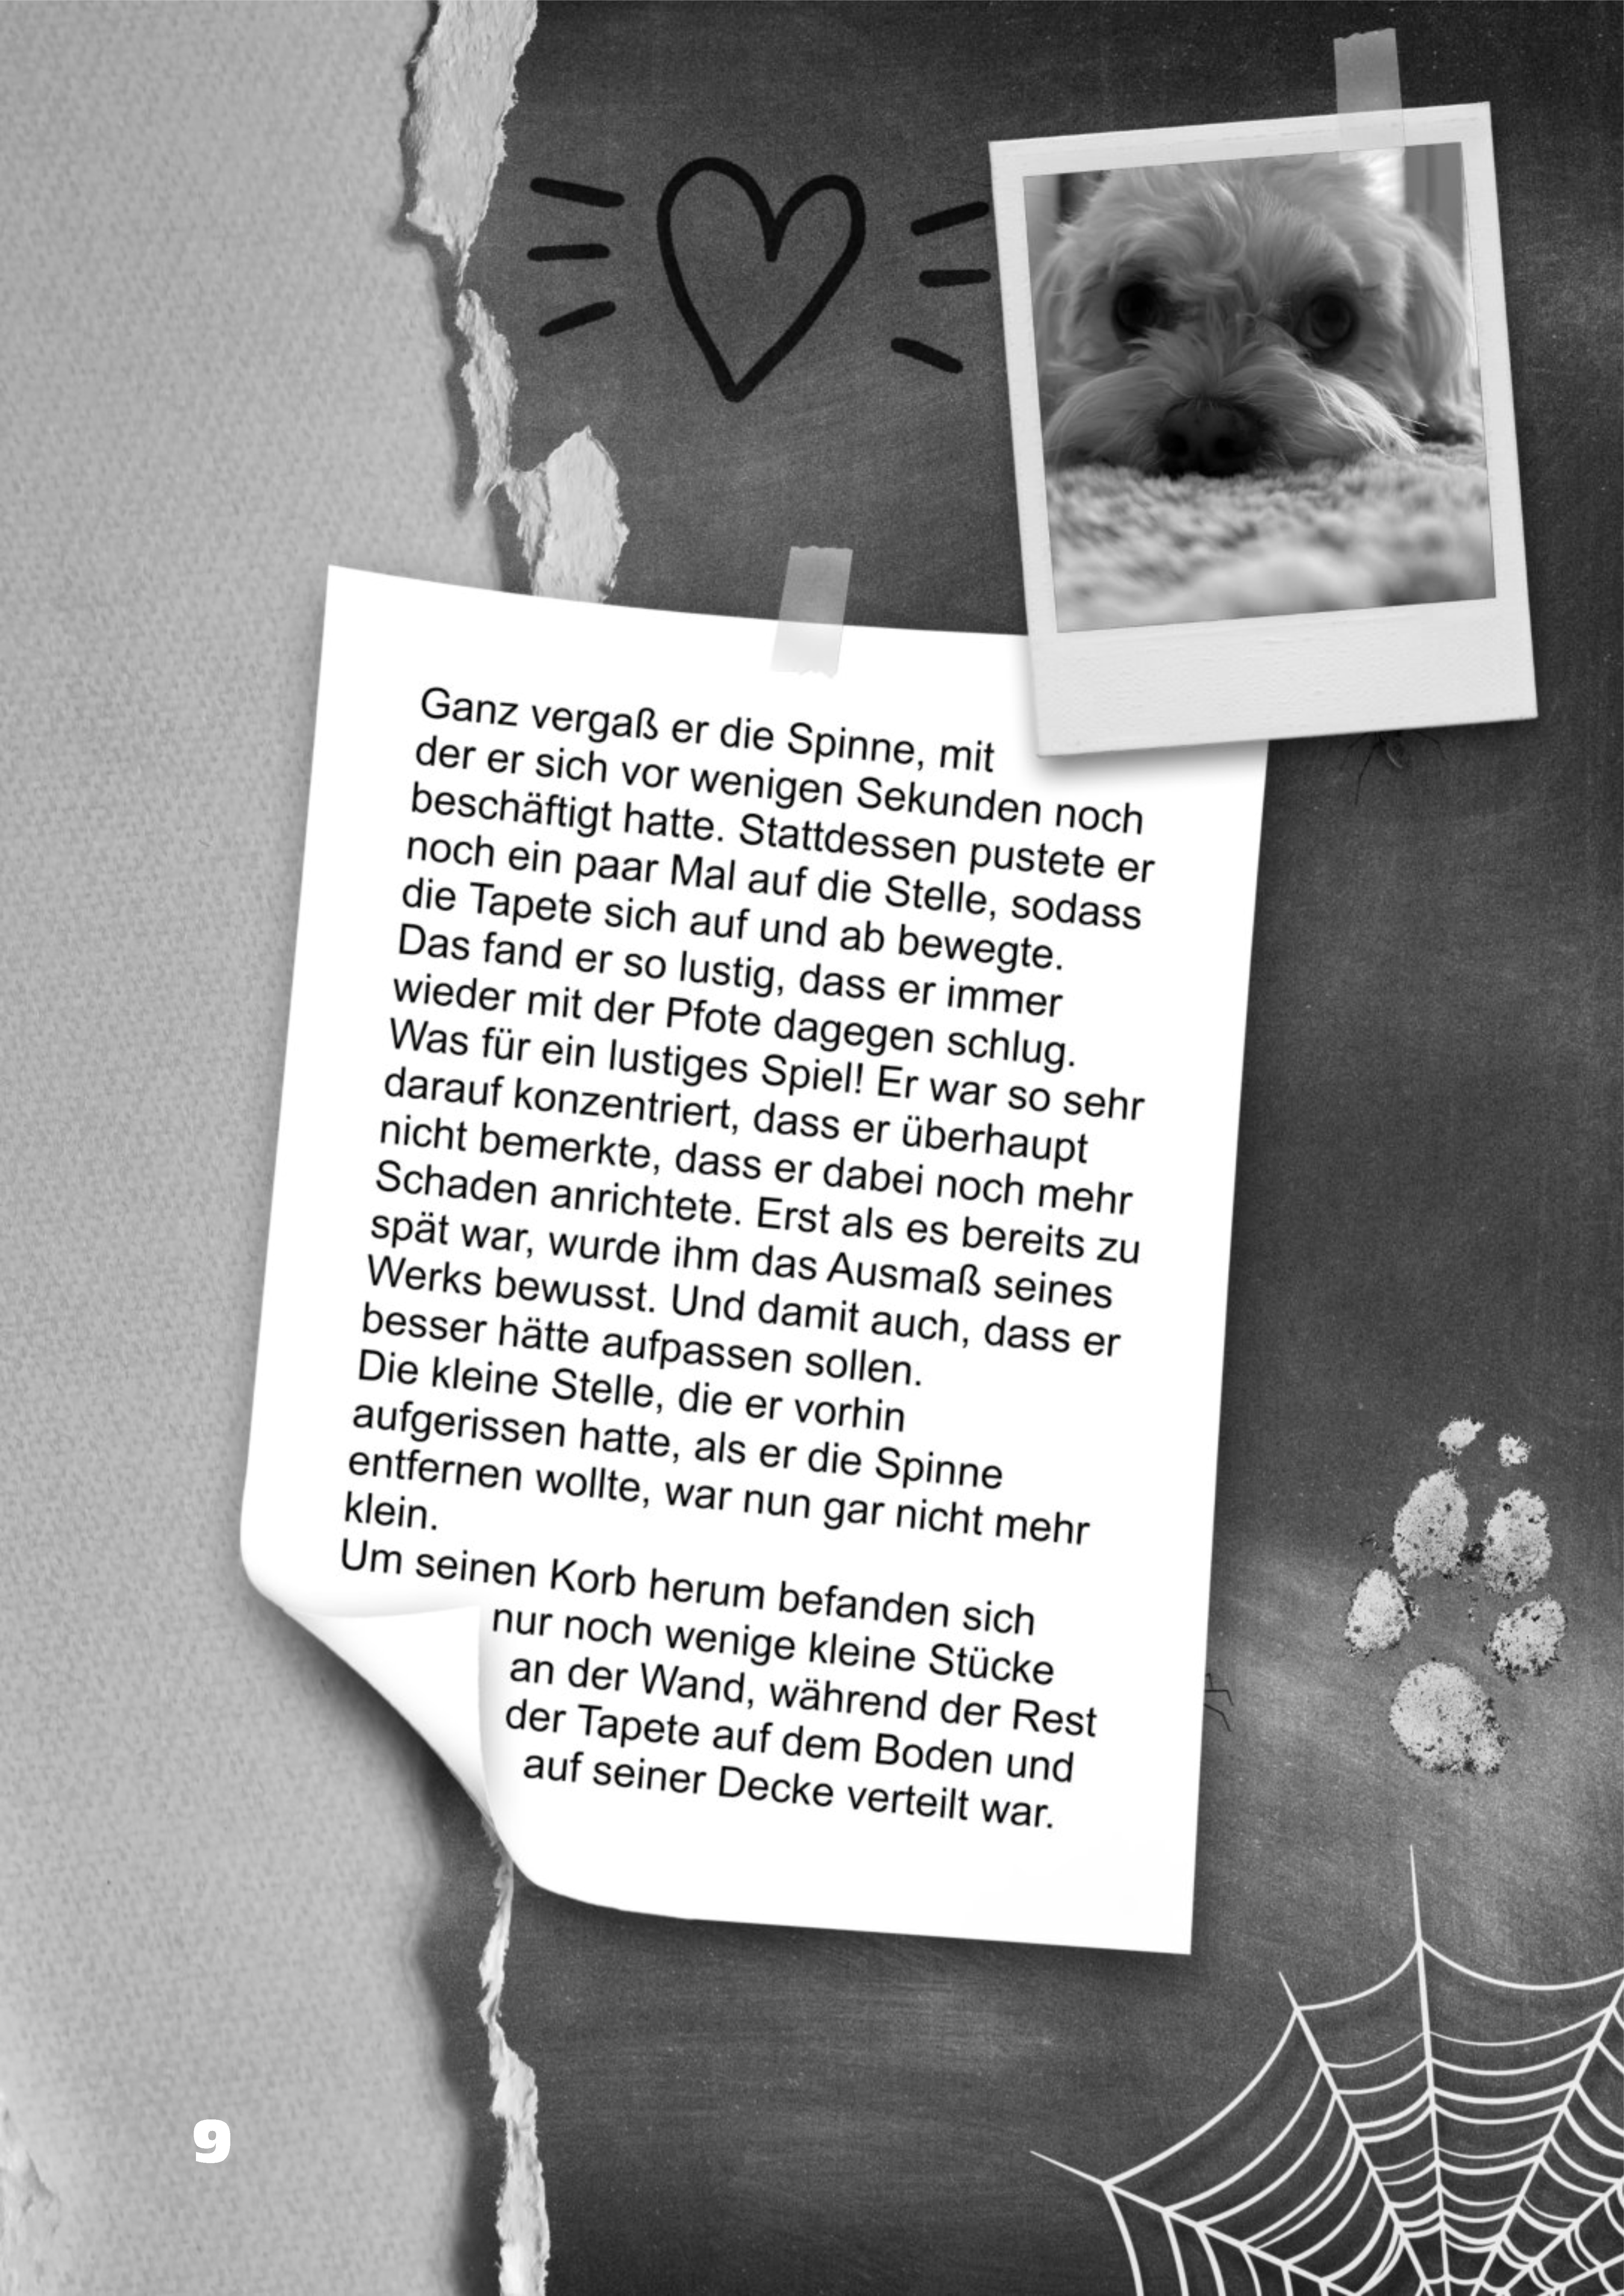 Ganz vergaß er die Spinne, mit
der er sich vor wenigen Sekunden noch
beschäftigt hatte. Stattdessen pustete er
noch ein paar Mal auf die Stelle, sodass
die Tapete sich auf und ab bewegte.
Das fand er so lustig, dass er immer
wieder mit der Pfote dagegen schlug.
Was für ein lustiges Spiel! Er war so sehr
darauf konzentriert, dass er überhaupt
nicht bemerkte, dass er dabei noch mehr
Schaden anrichtete. Erst als es bereits zu
spät war, wurde ihm das Ausmaß seines
Werks bewusst. Und damit auch, dass er
besser hätte aufpassen sollen.
Die kleine Stelle, die er vorhin
aufgerissen hatte, als er die Spinne
entfernen wollte, war nun gar nicht mehr
klein.
Um seinen Korb herum befanden sich
nur noch wenige kleine Stücke
an der Wand, während der Rest
der Tapete auf dem Boden und
auf seiner Decke verteilt war.
9